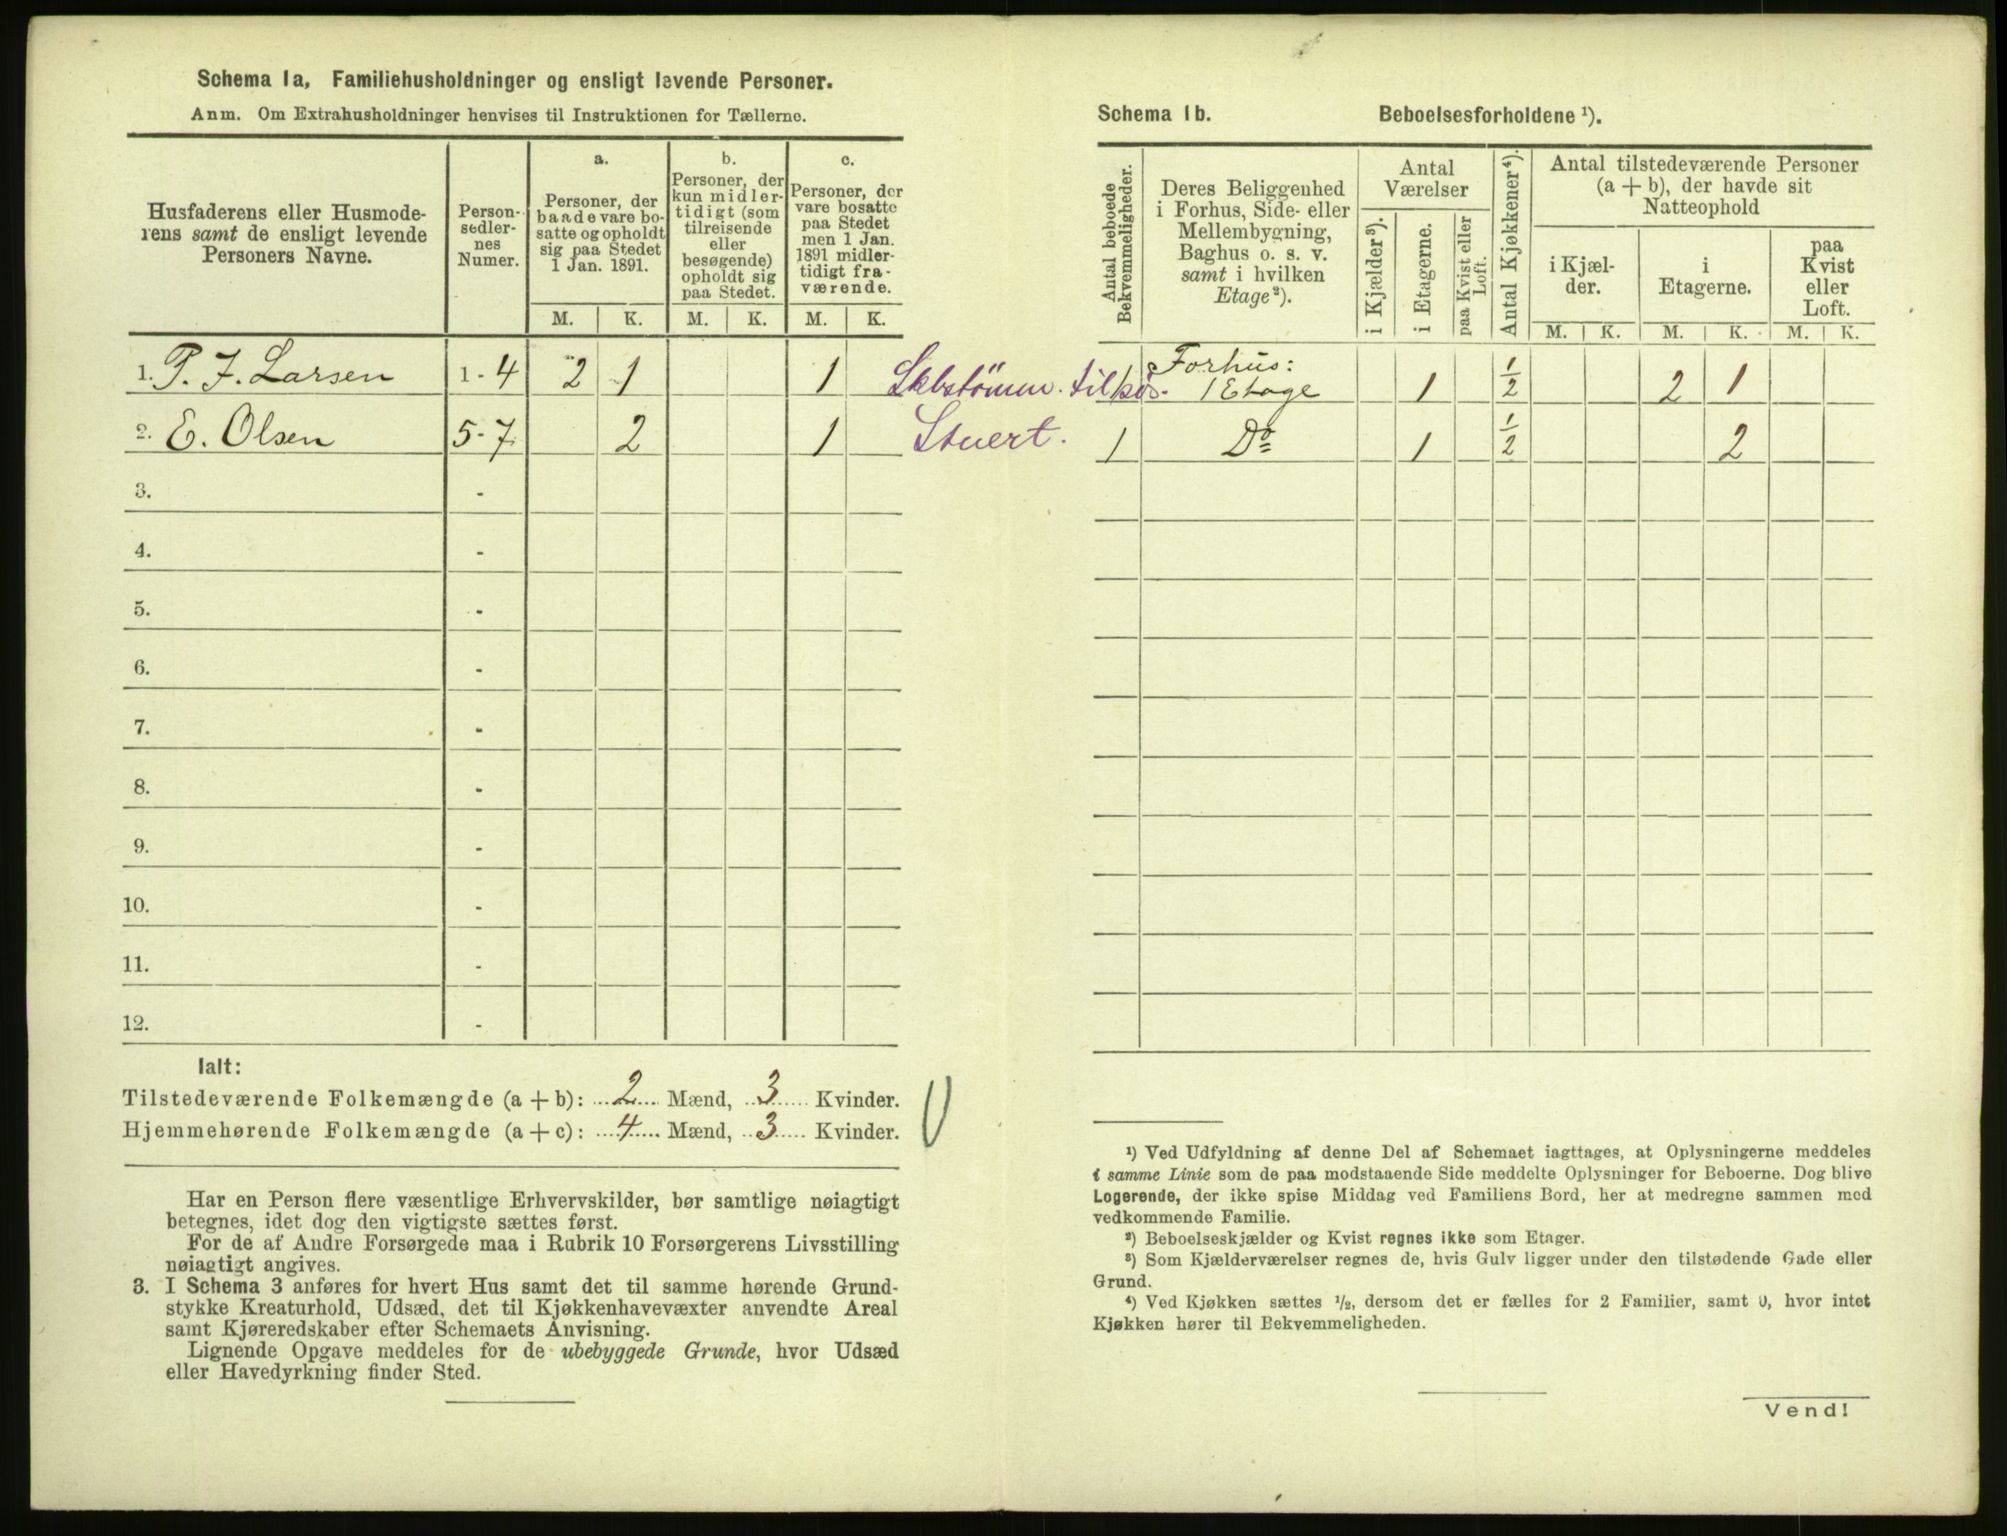 Schema 1a, Familiehusholdninger og ensligt levende Personer.
Anm. Om Extrahusholdninger henvises til Instruktionen for Tællerne.
Husfaderens eller Husmode-
rens samt de ensligt levende
Personers Navne.
Person-
sedler-
nes
Numer.
a.
Personer, der
baade vare bo-
satte og opholdt
sig paa Stedet
1 Jan. 1891.
b.
Personer, der
kun midler-
tidigt (som
tilreisende
eller
besøgende)
opholdt sig
paa Stedet.
c.
Personer, der
vare bosatte
paa Stedet
men 1 Jan.
1891 midler-
tidigt fra-
værende.
M. K. M. K. M. K.
1. P. J. Larsen 1-4 2 1 1
2. E. Olsen 5-7 2 1 Stuert.
3. -
4. -
5. -
6. -
7. -
8. -
9. -
10. -
11. -
12. -
Ialt:
Tilstedeværende Folkemængde (a + b): 2 Mænd, 3 Kvinder.
Hjemmehørende Folkemængde (a + c): 4 Mænd, 3 Kvinder.
Har en Person flere væsentlige Erhvervskilder, bør samtlige nøiagtigt
betegnes, idet dog den vigtigste sættes først.
For de af Andre Forsørgede maa i Rubrik 10 Forsørgerens Livsstilling
nøiagtigt angives.
3. I Schema 3 anføres for hvert Hus samt det til samme hørende Grund-
stykke Kreaturhold, Udsæd, det til Kjøkkenhavevæxter anvendte Areal
samt Kjøreredskaber efter Schemaets Anvisning.
Lignende Opgave meddeles for de ubebyggede Grunde, hvor Udsæd
eller Havedyrkning finder Sted.
Schema 1b. Beboelsesforholdene ¹).
Antal beboede
Bekvemmeligheder.
Deres Beliggenhed
i Forhus, Side- eller
Mellembygning,
Baghus o. s. v.
samt i hvilken
Etage²).
Antal
Værelser
i Kjælder³).
i Etagerne.
paa Kvist eller
Loft.
Antal Kjøkkener⁴).
Antal tilstedeværende Personer
(a + b), der havde sit
Natteophold
i Kjæl-
der.
i
Etagerne.
paa
Kvist
eller
Loft.
M. K. M. K. M. K.
1 Forhus:
1 Etage 1 1/2 2 1
1 Do 1 1/2 2
¹) Ved Udfyldning af denne Del af Schemaet iagttages, at Oplysningerne meddeles
i samme Linie som de paa modstaaende Side meddelte Oplysninger for Beboerne. Dog blive
Logerende, der ikke spise Middag ved Familiens Bord, her at medregne sammen med
vedkommende Familie.
²) Beboelseskjælder og Kvist regnes ikke som Etager.
³) Som Kjælderværelser regnes de, hvis Gulv ligger under den tilstødende Gade eller
Grund.
⁴) Ved Kjøkken sættes ½, dersom det er fælles for 2 Familier, samt 0, hvor intet
Kjøkken hører til Bekvemmeligheden.
Vend!